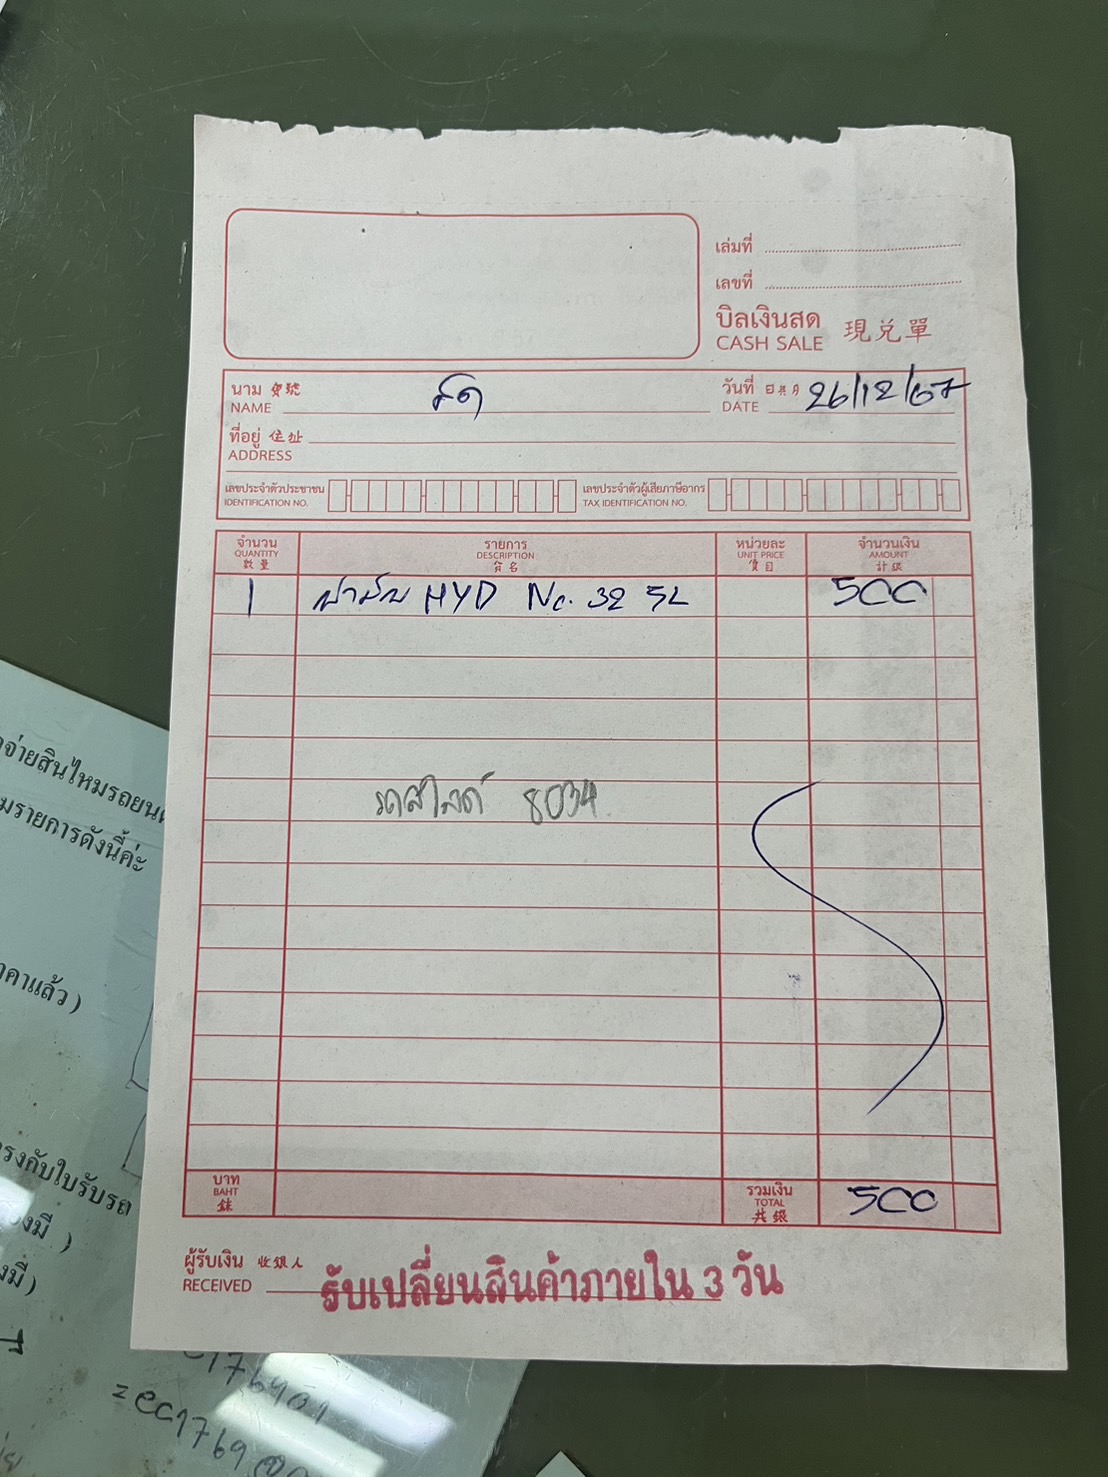 เล่มที่
เลขที่
บิลเงินสด 現兌單
CASH SALE
นาม 寶號 สด วันที่ 日共月 26/12/67
NAME DATE
ที่อยู่ 住址
ADDRESS
เลขประจำตัวประชาชน เลขประจำตัวผู้เสียภาษีอากร
IDENTIFICATION NO. TAX IDENTIFICATION NO.
จำนวน รายการ หน่วยละ จำนวนเงิน
QUANTITY DESCRIPTION UNIT PRICE AMOUNT
數量 貨名 價目 計銀
1 น้ำมัน HYD No. 32 5L 500
รถสไลด์ 8034
บาท รวมเงิน 500
BAHT TOTAL
銖 共銀
ผู้รับเงิน 收銀人
RECEIVED รับเปลี่ยนสินค้าภายใน 3 วัน
จ่ายสินไหมรถยนต์
รายการดังนี้ค่ะ
คาแล้ว )
รงกับใบรับรถ
งมี )
งมี)